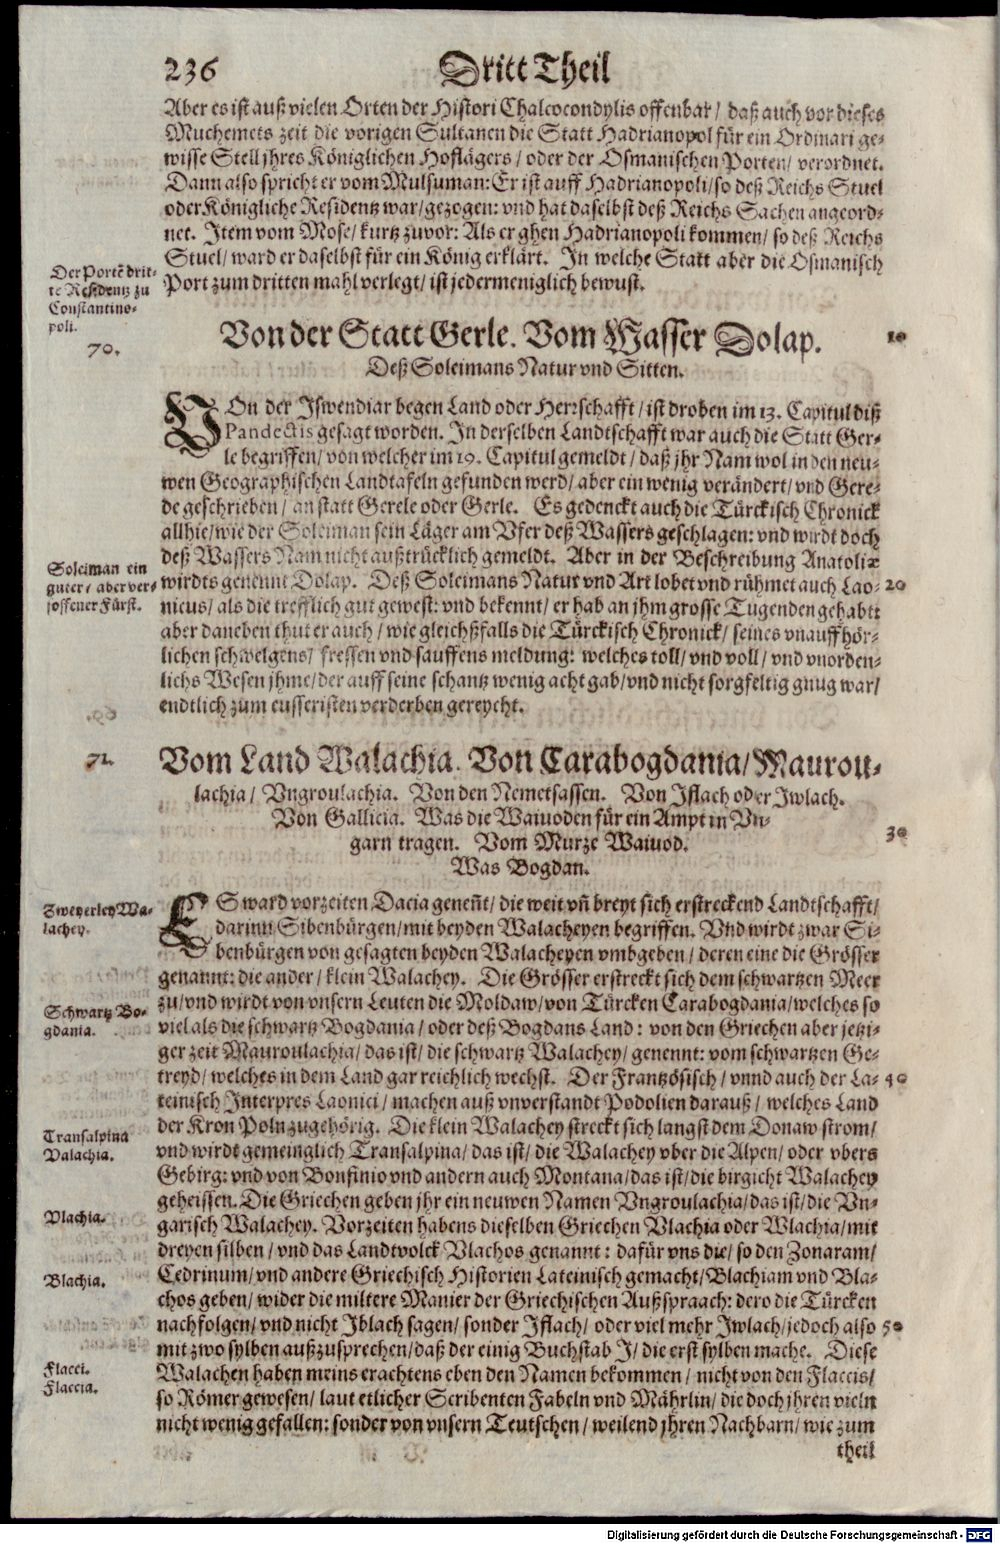 236
Dritt Theil
Aber es ist auß vielen Orten der Histori Chalcocondylis offenbar / daß auch vor dieses
Muchemets zeit die vorigen Sultanen die Statt Hadrianopol für ein Ordinari ge-
wisse Stell jhres Königlichen Hoflägers / oder der Osmanischen Porten / verordnet.
Dann also spricht er vom Mulsuman: Er ist auff Hadrianopoli / so deß Reichs Stuel
oder Königliche Residentz war / gezogen: vnd hat daselbst deß Reichs Sachen angeord-
net. Item vom Mose / kurtz zuvor: Als er ghen Hadrianopoli kommen / so deß Reichs
Stuel / ward er daselbst für ein König erklärt. In welche Statt aber die Osmanisch
Port zum dritten mahl verlegt / ist jedermeniglich bewust.
Der Portē drit-
te Residentz zu
Constantino-
poli.
70.
Von der Statt Gerle. Vom Wasser Dolap.
10
Deß Soleimans Natur vnd Sitten.
VOn der Iswendiar begen Land oder Herrschafft / ist droben im 13. Capitul diß
Pandectis gesagt worden. In derselben Landtschafft war auch die Statt Ger-
le begriffen / von welcher im 19. Capitul gemeldt / daß jhr Nam wol in den neu-
wen Geographischen Landtafeln gefunden werd / aber ein wenig verändert / vnd Gere-
de geschrieben / an statt Gerele oder Gerle. Es gedenckt auch die Türckisch Chronick
allhie / wie der Soleiman sein Läger am Vfer deß Wassers geschlagen: vnd wirdt doch
deß Wassers Nam nicht außtrücklich gemeldt. Aber in der Beschreibung Anatoliæ
wirdts genennt Dolap. Deß Soleimans Natur vnd Art lobet vnd rühmet auch Lao-
20
nicus / als die trefflich gut gewest: vnd bekennt / er hab an jhm grosse Tugenden gehabt:
aber daneben thut er auch / wie gleichßfalls die Türckisch Chronick / seines vnauffhör-
lichen schwelgens / fressen vnd sauffens meldung: welches toll / vnd voll / vnd vnorden-
lichs Wesen jhme / der auff seine schantz wenig acht gab / vnd nicht sorgfeltig gnug war /
endtlich zum eusseristen verderben gereycht.
Soleiman ein
guter / aber ver-
soffener Fürst.
71.
Vom Land Walachia. Von Carabogdania / Maurou-
lachia / Vngroulachia. Von den Nemetsassen. Von Iflach oder Iwlach.
Von Gallicia. Was die Waiuoden für ein Ampt in Vn-
30
garn tragen. Vom Murze Waiuod.
Was Bogdan.
ES ward vorzeiten Dacia geneñt / die weit vñ breyt sich erstreckend Landtschafft /
darinn Sibenbürgen / mit beyden Walacheyen begriffen. Vnd wirdt zwar Si-
benbürgen von gesagten beyden Walacheyen vmbgeben / deren eine die Grösser
genannt: die ander / klein Walachey. Die Grösser erstreckt sich dem schwartzen Meer
zu / vnd wirdt von vnsern Leuten die Moldaw / von Türcken Carabogdania / welches so
viel als die schwartz Bogdania / oder deß Bogdans Land: von den Griechen aber jetzi-
ger zeit Mauroulachia / das ist / die schwartz Walachey / genennt: vom schwartzen Ge-
treyd / welches in dem Land gar reichlich wechst. Der Frantzösisch / vnnd auch der La-
40
teinisch Interpres Laonici / machen auß vnverstandt Podolien darauß / welches Land
der Kron Poln zugehörig. Die klein Walachey streckt sich langst dem Donaw strom /
vnd wirdt gemeinglich Transalpina / das ist / die Walachey vber die Alpen / oder vbers
Gebirg: vnd von Bonfinio vnd andern auch Montana / das ist / die birgicht Walachey
geheissen. Die Griechen geben jhr ein neuwen Namen Vngroulachia / das ist / die Vn-
garisch Walachey. Vorzeiten habens dieselben Griechen Vlachia oder Wlachia / mit
dreyen silben / vnd das Landtvolck Vlachos genannt: dafür vns die / so den Zonaram /
Cedrinum / vnd andere Griechisch Historien Lateinisch gemacht / Blachiam vnd Bla-
chos geben / wider die miltere Manier der Griechischen Außspraach: dero die Türcken
nachfolgen / vnd nicht Iblach sagen / sonder Iflach / oder viel mehr Iwlach / jedoch also
50
mit zwo sylben außzusprechen / daß der einig Buchstab I / die erst sylben mache. Diese
Walachen haben meins erachtens eben den Namen bekommen / nicht von den Flaccis /
so Römer gewesen / laut etlicher Scribenten Fabeln vnd Mährlin / die doch jhren vieln
nicht wenig gefallen: sonder von vnsern Teutschen / weilend jhren Nachbarn / wie zum
theil
Zweyerley Wa-
lachey.
Schwartz Bo-
gdania.
Transalpina
Valachia.
Vlachia.
Blachia.
Flacci.
Flaccia.
Digitalisierung gefördert durch die Deutsche Forschungsgemeinschaft - DFG